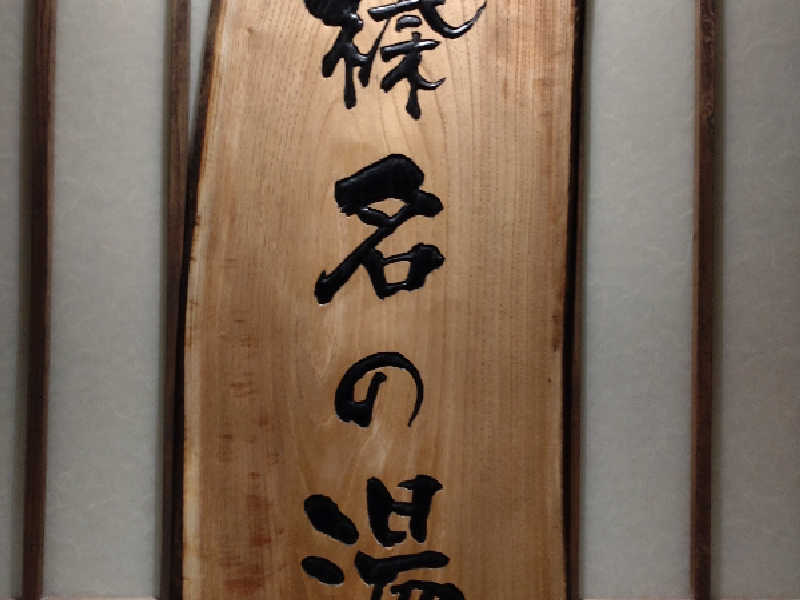 榛名の湯